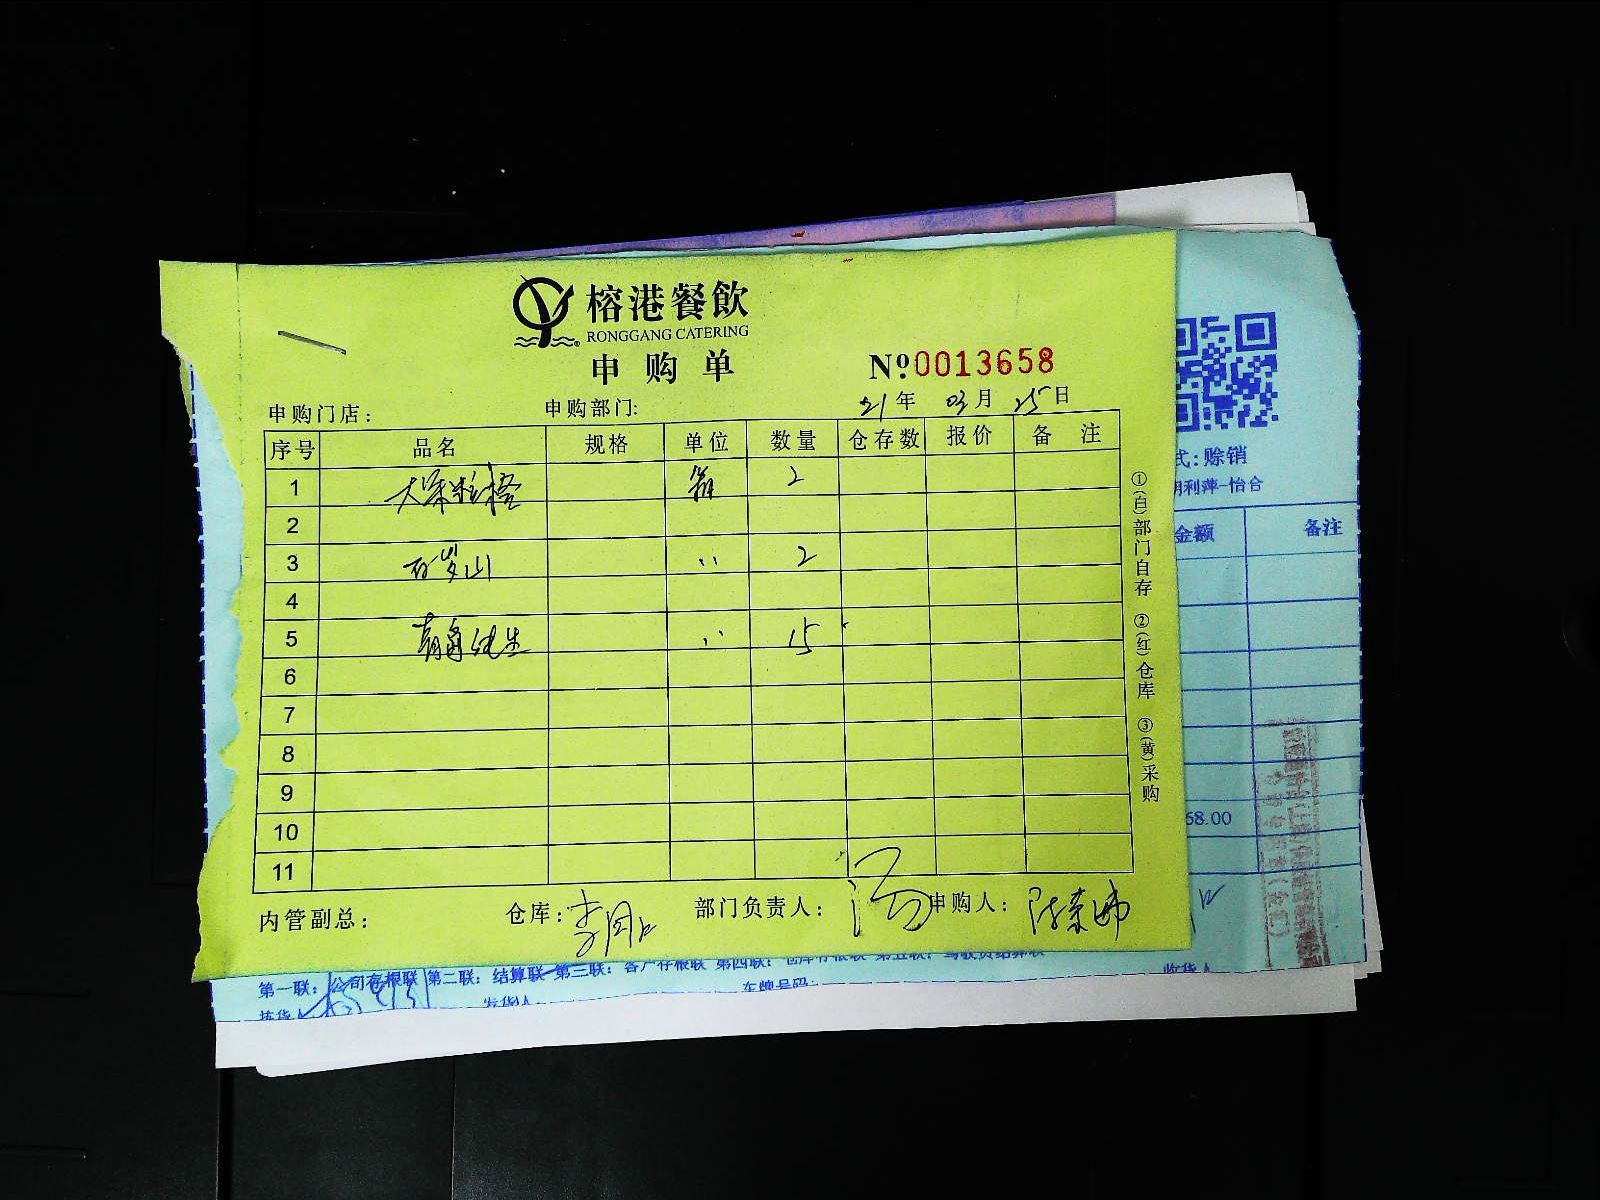 榕港餐飲
RONGGANG CATERING
申购单
№0013658
申购门店: 申购部门: 21年 03月 25日
序号 品名 规格 单位 数量 仓存数 报价 备 注
1 大深粒橙 箱 2
2
3 百岁山 〃 2
4
5 青岛纯生 〃 15
6
7
8
9
10
11
内管副总: 仓库: 部门负责人: 汤 申购人:
①(白)部门自存 ②(红)仓库 ③(黄)采购
式:赊销
明利萍-怡合
金额 备注
68.00
第一联: 公司存根联 第二联: 结算联 第三联: 客户存根联 第四联: 仓库存根联 第五联: 驾驶员结算联
拣货人 发货人 车牌号码: 收货人